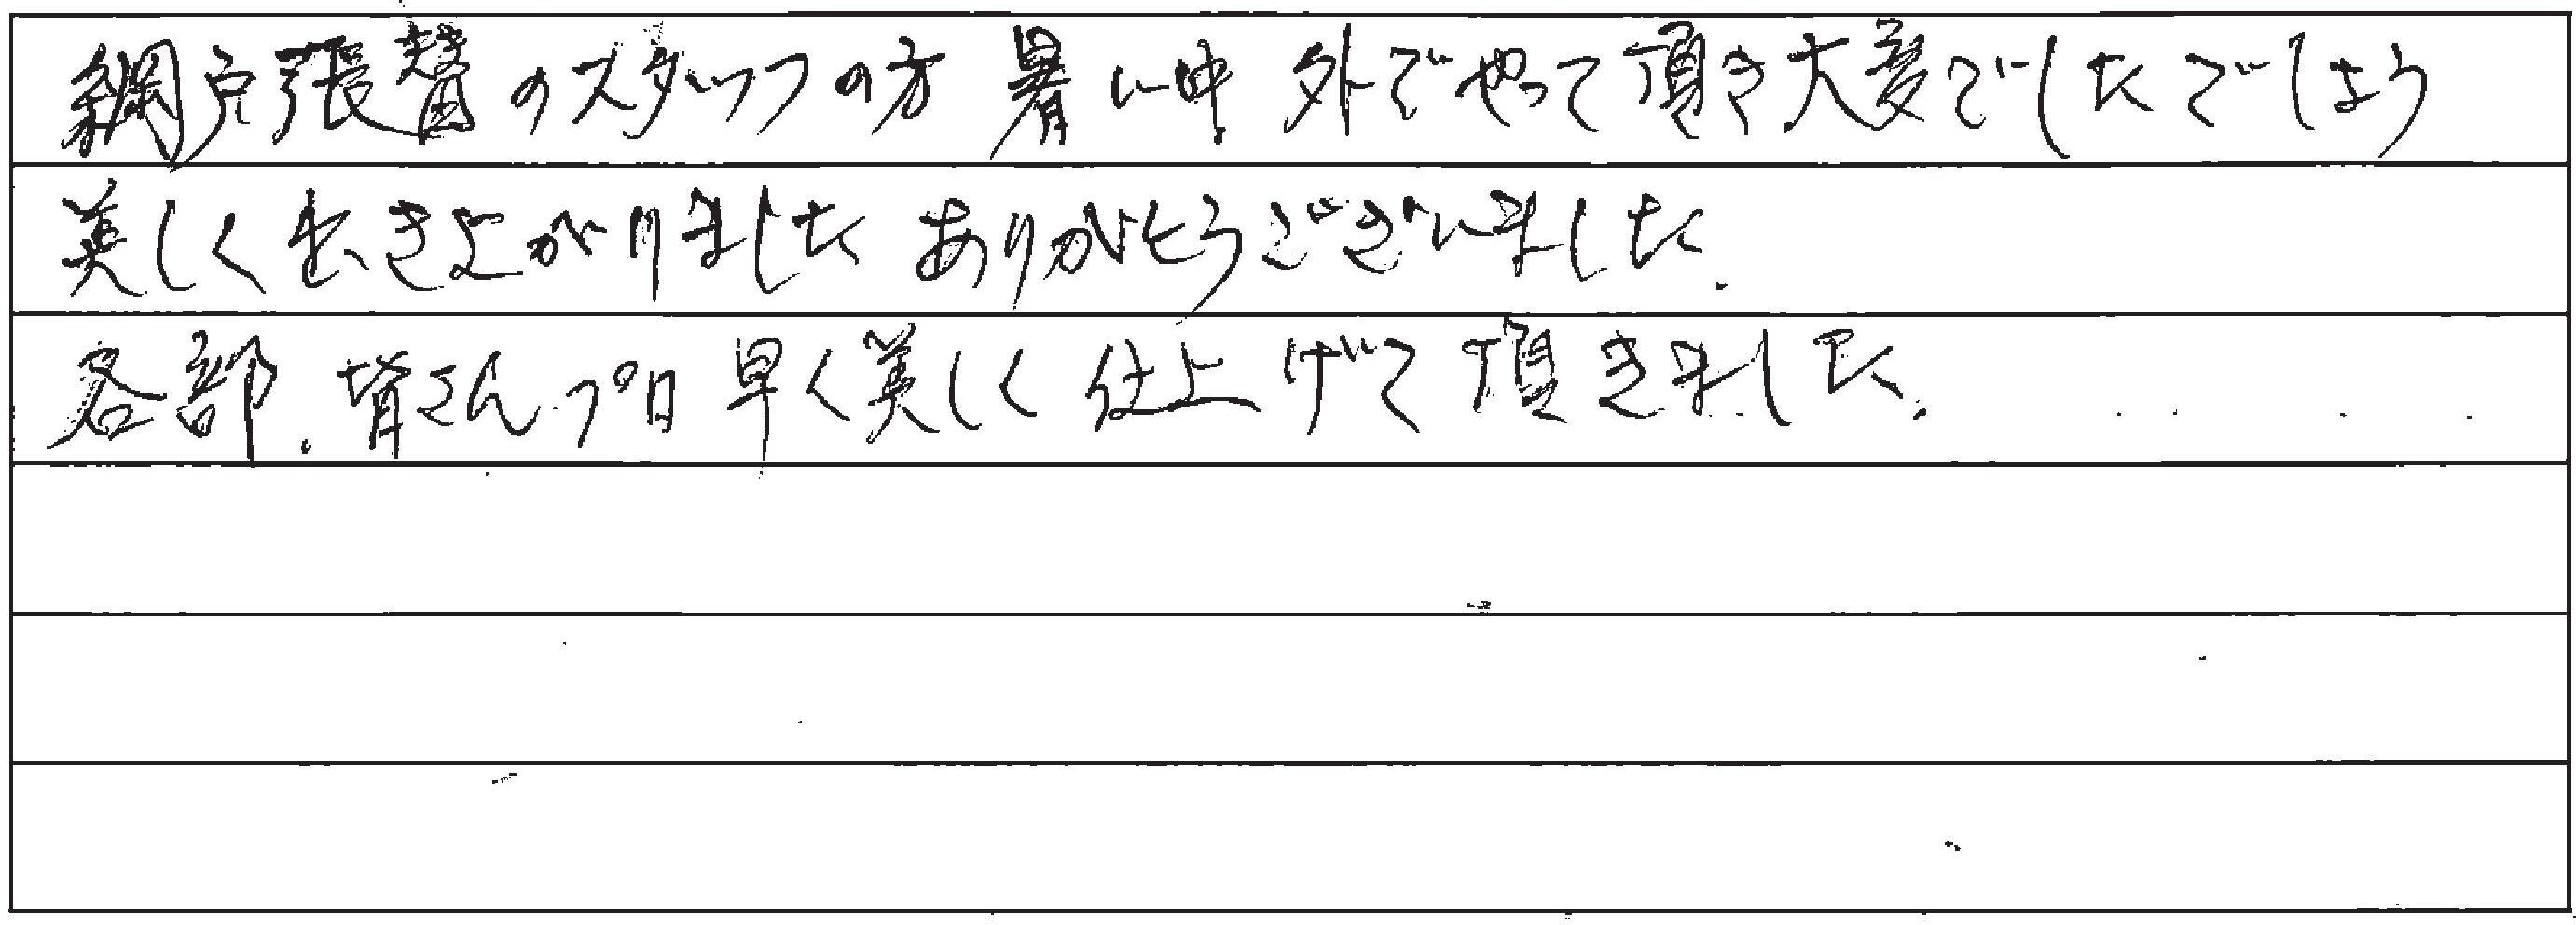 網戸張替のスタッフの方 暑い中 外でやって頂き大変でしたでしょう
美しく出き上がりました ありがとうございました.
各部.皆さんプロ 早く美しく仕上げて頂きました.